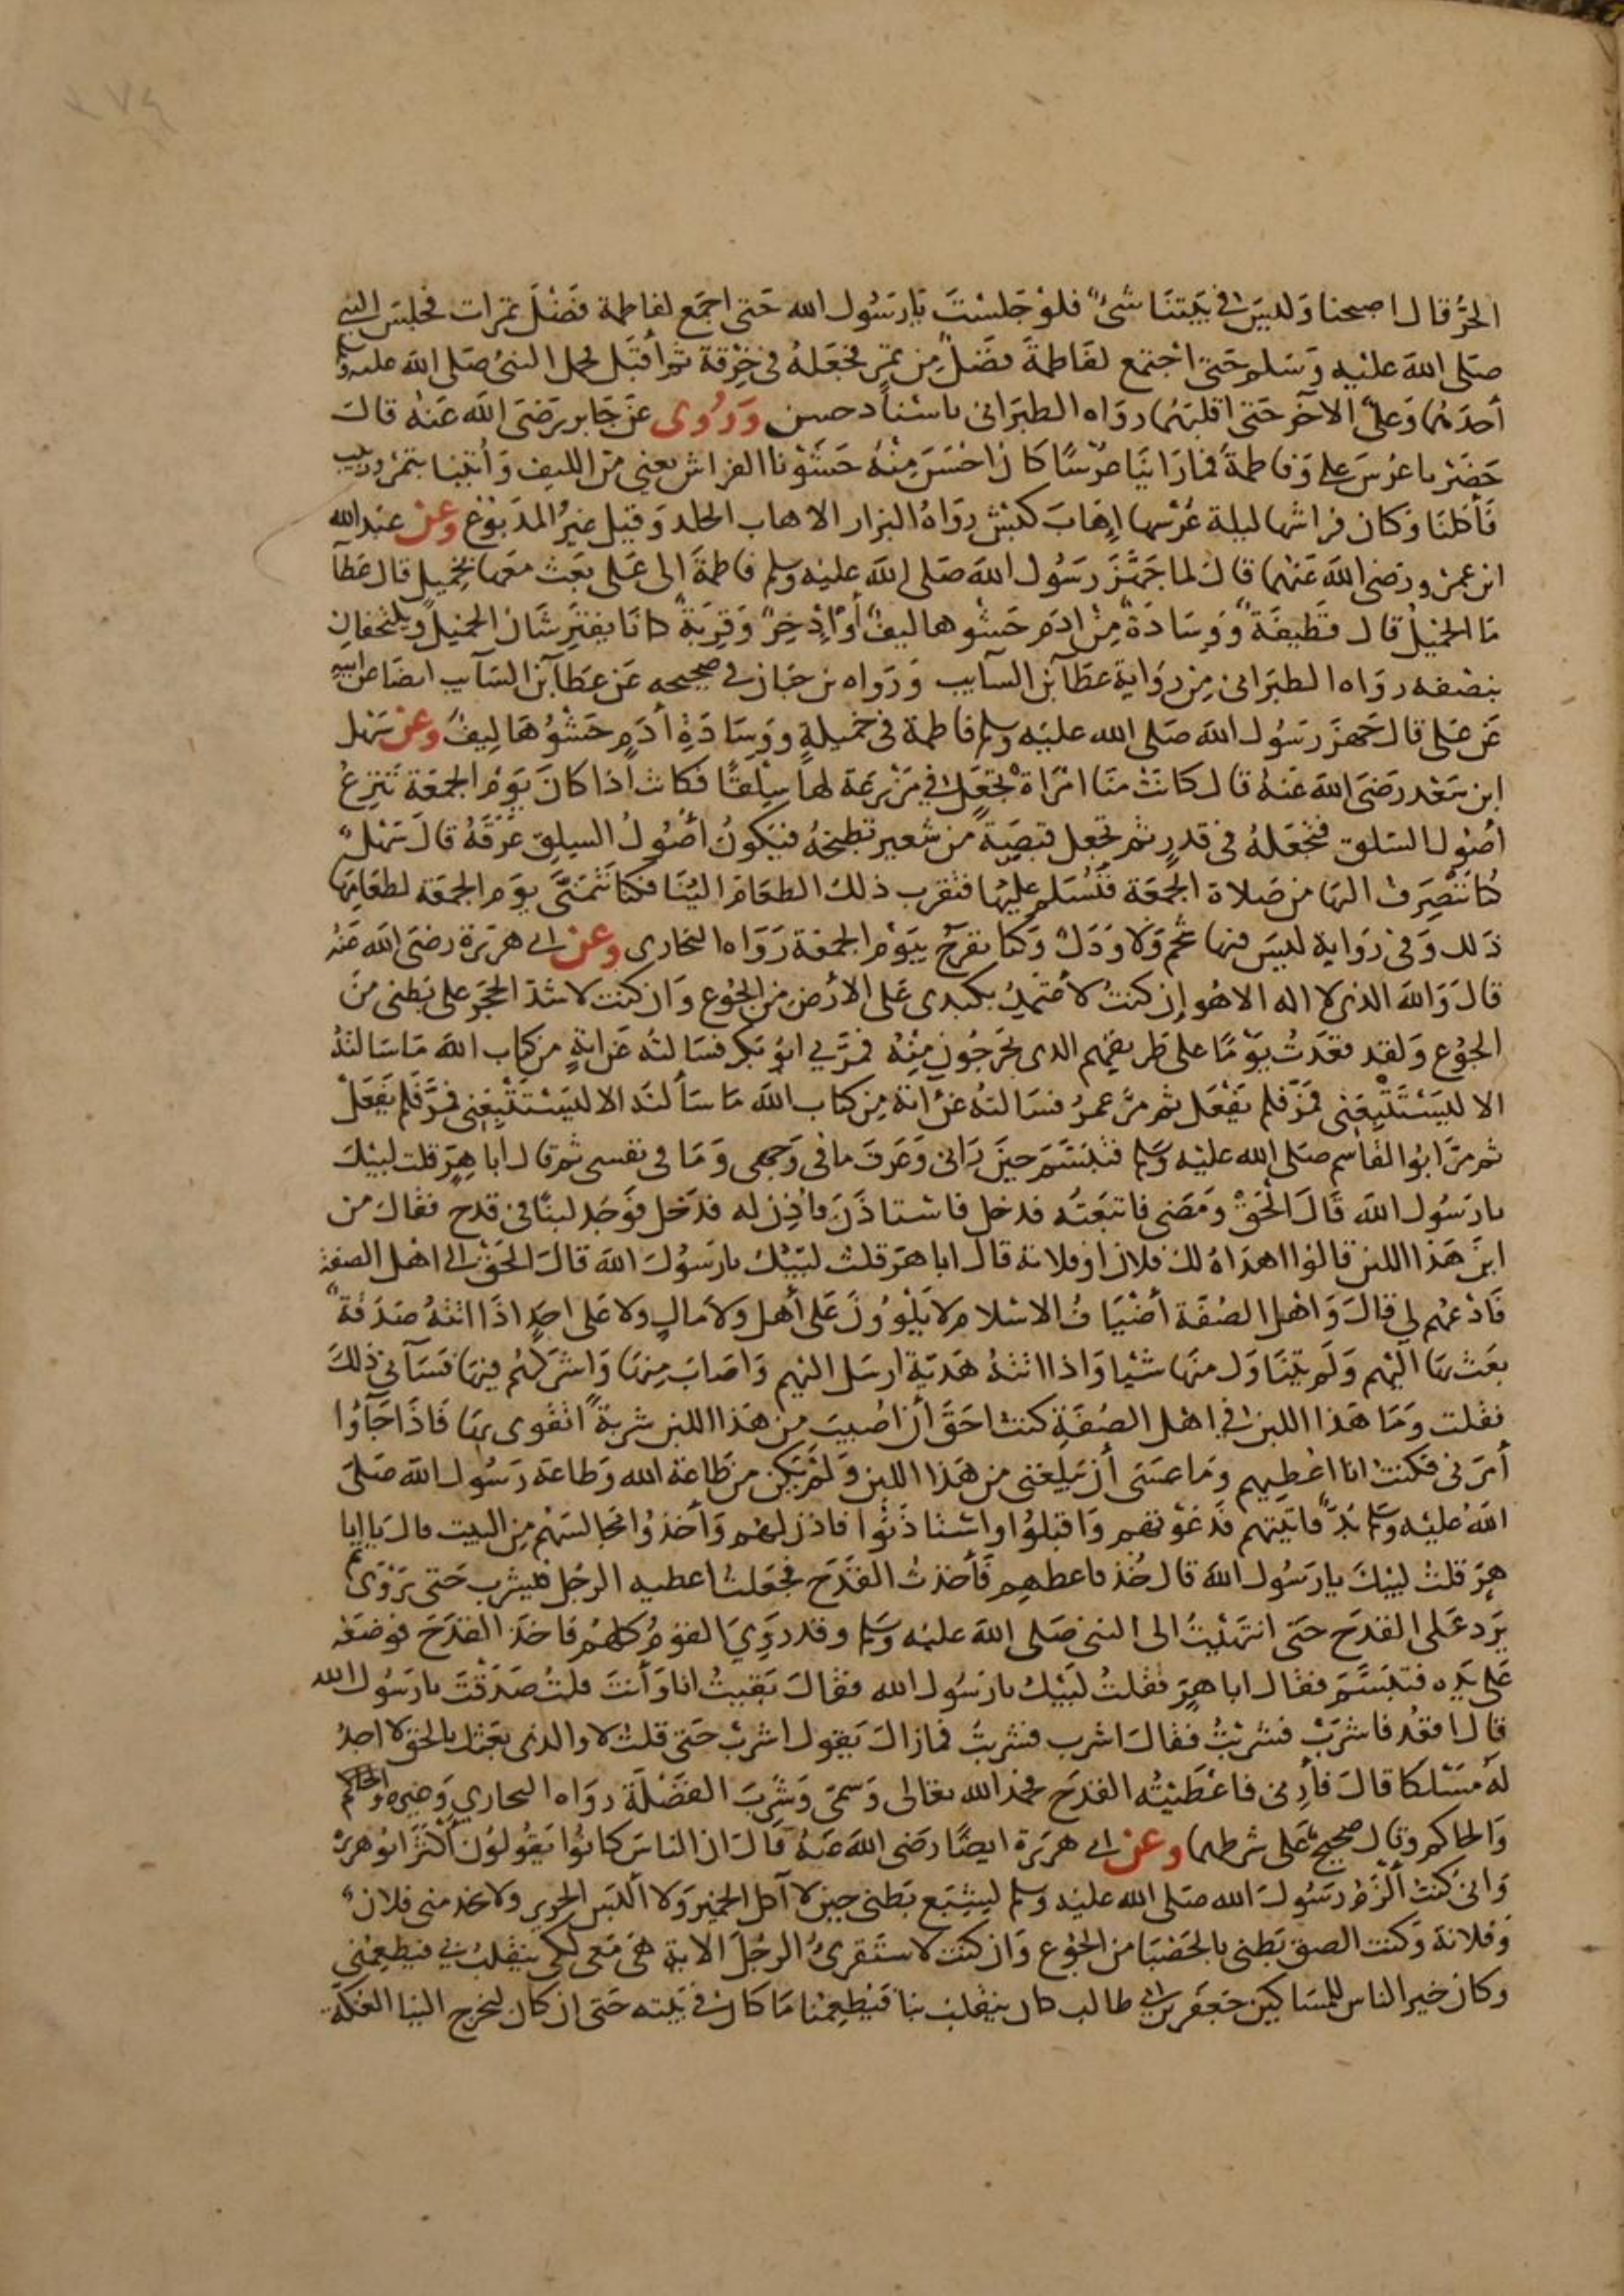 الحرّ قال اصبحنا وَليسَ في بَيتنَا شئ فلوْ جَلسْتَ يا رَسُول الله حَتى اجمَع لفاطمة فَضْلَ تمرات فجلسَ النبي
صَلى الله عَليْه وَسَلم حَتى اجْتمع لفَاطمَة فضَلٌ مِن تمرٍ فجعَلهُ في خِرْقة ثم أقبَل فحمل النبىُ صَلى الله عليه وسلم
أحدَهُما وَعلىٌ الآخر حَتى اقلبَهُما روَاه الطبَرانى باسْناد حسن وَرُوى عَن جَابر رَضىَ الله عَنهُ قال
حَضَرْنا عرْسَ على وَفاطمَة فما رَاينَا عرْسًا كانَ احْسَنَ مِنْهُ حَشَوْنا الفراش يعنى مِن الليف وَأُتينا بتمر وزيت
فَأكلنَا وَكان فراشها ليلة عُرْسها إهَابَ كبْش روَاهُ البزار الاهاب الجلد وَقيل غيرُ المدبُوغ وعنْ عبد الله
ابن عمرو رَضى الله عَنهما قالَ لما جَهَّزَ رَسُول الله صَلى الله عليْه وسلم فاطمَةَ الى عَلى بَعث معَها بخميل قال عَطآ
مَا الخميْلُ قال قطيفَة وَوسَادَة مِنْ ادَم حَشوها ليفٌ أوْ إذخِرٌ وَقربَةٌ كانَا يفترشَان الخميْل وَيلتحفَانِ
بنصْفه روَاه الطبَرانى مِن روَاية عطَآ بن السآيب وَرَواه بن حبان في صحيحه عَن عَطآ بن السَآيب ايضَا عن ابيه
عَن عَلى قال جَهزَ رَسُول الله صَلى الله عليَه وسلم فاطمة في خميلةٍ ووِسَادَةِ أدَمٍ حَشْوُهَا لِيفٌ وعنْ سَهْل
ابن سَعْد رَضىَ الله عَنهُ قال كانَتْ منَا امْرَاة تجْعَل في مَزْرعَة لها سِلْقًا فكانت اذا كانَ يَوْم الجمعَة تَنزِعُ
اصُوْل السّلق فتجْعَلهُ في قدرٍ ثم تجعل قبْضَة من شعير تطبخهُ فيَكونُ أصُوْلُ السلق عَرْقَهُ قالَ سَهْل
كُنا نَنْصَرفُ اليهَا من صَلاة الجمُعَة فنُسَلم عليْهَا فتقرب ذلكَ الطعَام اليْنَا فكنا نَتمَنّى يوَم الجمعَة لطعَامِهَا
ذَلك وَفي روَاية ليسَ فيها شحْم وَلا وَدَكٌ وَكنا نفرحُ بيَوْم الجمعَة رَوَاه البخارى وعنْ ابى هريَرة رَضىَ الله عَنهُ
قالَ وَالله الذى لا اله الا هُو إن كنتُ لأعْتمدُ بكبدى عَلى الأرْض من الجُوْع وَان كنت لاشدّ الحجَر على بَطنى منَ
الجوُع وَلقد قعَدتُ يَوْمًا على طَريقهم الذى يخرجُون مِنْهُ فمرَّ بى ابوُ بَكر فسَالتُه عَن ايَةٍ من كتاب الله مَا سَالتُهُ
الا ليَسْتَتْبعَنى فمَرّ فلم يَفعَل ثم مَرَّ عمرُ فسَالتهُ عَن آيَة مِن كتاب الله مَا سَألتُه الا ليَسْتَتْبِعَنى فمَرَّ فلم يَفعَلْ
ثم مرَّ ابوُ القاسم صَلى الله عليْه وسَلم فتَبسَّمَ حينَ رَانى وَعرَفَ ما في وَجهى وَمَا في نفسى ثم قال أبا هِرٍّ قلت لبيْكَ
يا رَسُول الله قَالَ الْحَقْ وَمَضى فاتبَعتُه فدخل فاستاذَنَ فأُذِنَ له فدَخل فوَجَد لبنًا في قدحٍ فقالَ من
اينَ هَذا اللبن قالوُا اهدَاهُ لكَ فلانٌ او فلانة قال ابا هرّ قلتُ لبّيْكَ يا رَسُولَ الله قالَ الحَقْ الى اهْل الصفة
فَادْعُهُم لي قالَ وَاهْل الصُفَة أضْيَافُ الاسْلام لا يَلْوُونَ عَلى أهلٍ وَلا مَالٍ ولا عَلى احَدٍ اذَا اتتهُ صَدَقَةٌ
بعَثَ بهَا اليهم وَلَم يتنَاول منهَا شيْا وَاذا اتتهُ هَديَة ارسَل اليْهِم وَاصَابَ مِنهَا وَاشرَكهُم فيهَا فسَآنى ذلكَ
فقلت وَمَا هَذا اللبن في اهْل الصُفَّةِ كنتُ احَقَّ أن اصُيبَ من هَذا اللبن شربةً اتقوى بهَا فَاذَا جَآوُا
أمرَنى فكنتُ انا اعْطيهم وَما عَسَى أن يَبلغنى من هَذا اللبن وَلمْ يَكن من طَاعة الله وَطاعَة رَسُول الله صَلى
الله عُليْه وسَلم بُدٌّ فاتيْتهم فدَعَوْتهم وَاقبَلوُا واسْتاذَنُوا فاذن لهُم وَأخذوُا مجَالسَهُم مِن البيت قال يا ابا
هِرّ قلتُ لبيْكَ يا رَسُول الله قال خُذ فاعطهِم فَأخذتُ القَدَح فجعَلتُ اعطيه الرجُل فيشرب حَتى يَرْوَى ثم
يَرد عَلى القدَح حَتى انتهَيْتُ الى النبى صَلى الله عليْه وسَلم وقد رَوِيَ القومُ كلهُم فاخذَ القدَحَ فوضَعَه
عَلى يَدِه فتبَسَّمَ فقال ابا هِرّ فقلتُ لبيْكَ يا رَسُول الله فقالَ بَقيتُ انا وَأنتَ قلتُ صَدَقْتَ يا رَسُول الله
قال اقعُد فاشرَبْ فشربْتُ فقالَ اشرب فشربتُ فمازالَ يَقول اشربْ حَتى قلتُ لا والذى بعَثك بالحق لا اجدُ
لهُ مَسْلكا قالَ فأرِنى فاعْطَيْتُه القدَح فحمد الله تعالى وَسمّى وَشَرِبَ الفضْلَة روَاه البخاري وَغيره والحاكم
وَالحاكم وقال صحيحٌ عَلى شرطهما وعنْ ابى هريَرة ايضًا رَضى الله عَنهُ قَالَ ان الناسَ كانوُا يَقُولوُن أكْثرَ ابوُ هريْرَة
وَانى كنتُ ألْزَمُ رَسُولَ الله صَلى الله عليْه وسلم ليشبَع بَطنى حين لا آكل الخميْر وَلا ألبَس الحرير ولا يخدمنى فلان
وَفلانة وَكنت الصق بَطنى بالحَصْبَا من الجُوْع وَان كنت لاستَقرئُ الرجُلَ الاية هىَ مَعى لكى ينقلبُ بى فيُطعِمُنى
وكان خير الناس للمسَاكين جَعفَر بن ابى طالب كان ينقلبُ بنا فيُطعِمُنا مَا كان في بَيته حَتى ان كان ليخرج اليْنا العُكّة